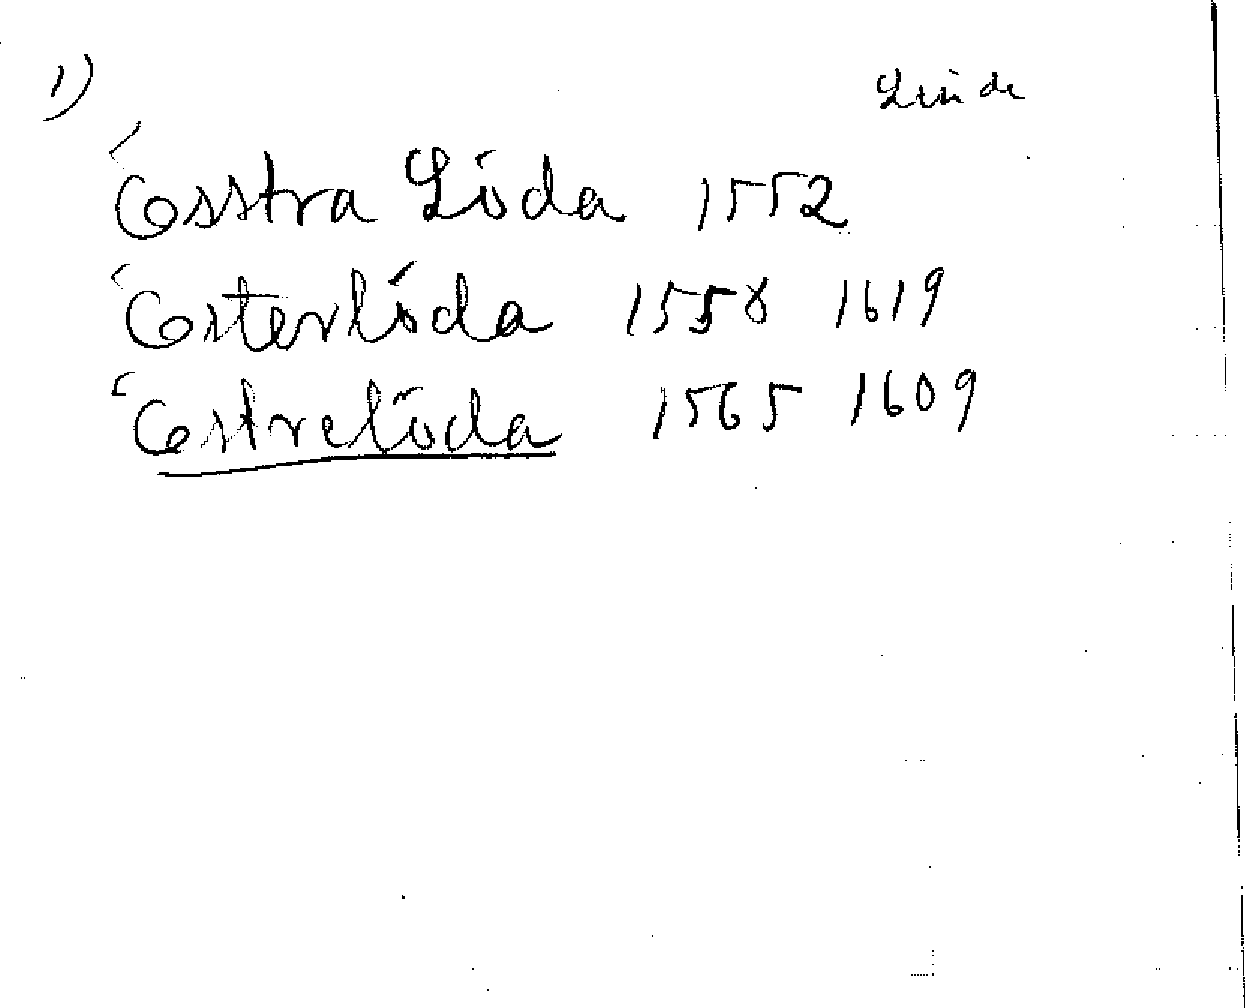 1) Linde
Össtra Löda 1552
Österlöda 1558 1619
Östrelöda 1565 1609